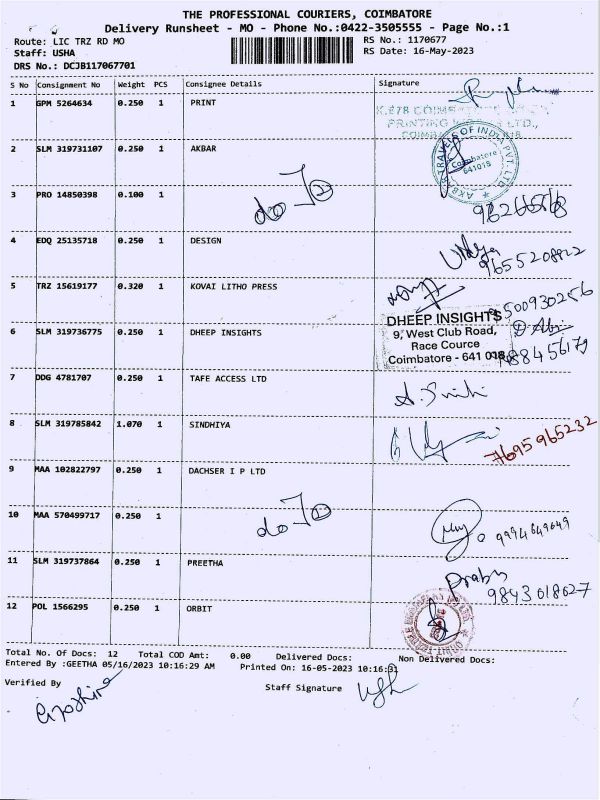 THE PROFESSIONAL COURIERS, COIMBATORE
Delivery Runsheet - MO - Phone No.:0422-3505555 - Page No.:1
Route: LIC TRZ RD MO RS No.: 1170677
Staff: USHA RS Date: 16-May-2023
DRS No.: DCJB117067701
S No Consignment No Weight PCS Consignee Details Signature
1 GPM 5264634 0.250 1 PRINT
PRINTING LTD.,
2 SLM 319731107 0.250 1 AKBAR
AKBAR TRAVELS OF INDIA PVT. LTD
Coimbatore
641018
3 PRO 14850398 0.100 1
4 EDQ 25135718 0.250 1 DESIGN
9655208822
5 TRZ 15619177 0.320 1 KOVAI LITHO PRESS
9500930256
6 SLM 319736775 0.250 1 DHEEP INSIGHTS
DHEEP INSIGHTS
9, West Club Road,
Race Cource
Coimbatore - 641 018
7 DDG 4781707 0.250 1 TAFE ACCESS LTD
8 SLM 319785842 1.070 1 SINDHIYA
7695965232
9 MAA 102822797 0.250 1 DACHSER I P LTD
10 MAA 570499717 0.250 1
9994649649
11 SLM 319737864 0.250 1 PREETHA
Prabu
9843018627
12 POL 1566295 0.250 1 ORBIT
Total No. Of Docs: 12 Total COD Amt: 0.00 Delivered Docs: Non Delivered Docs:
Entered By :GEETHA 05/16/2023 10:16:29 AM Printed On: 16-05-2023 10:16:31
Verified By Staff Signature